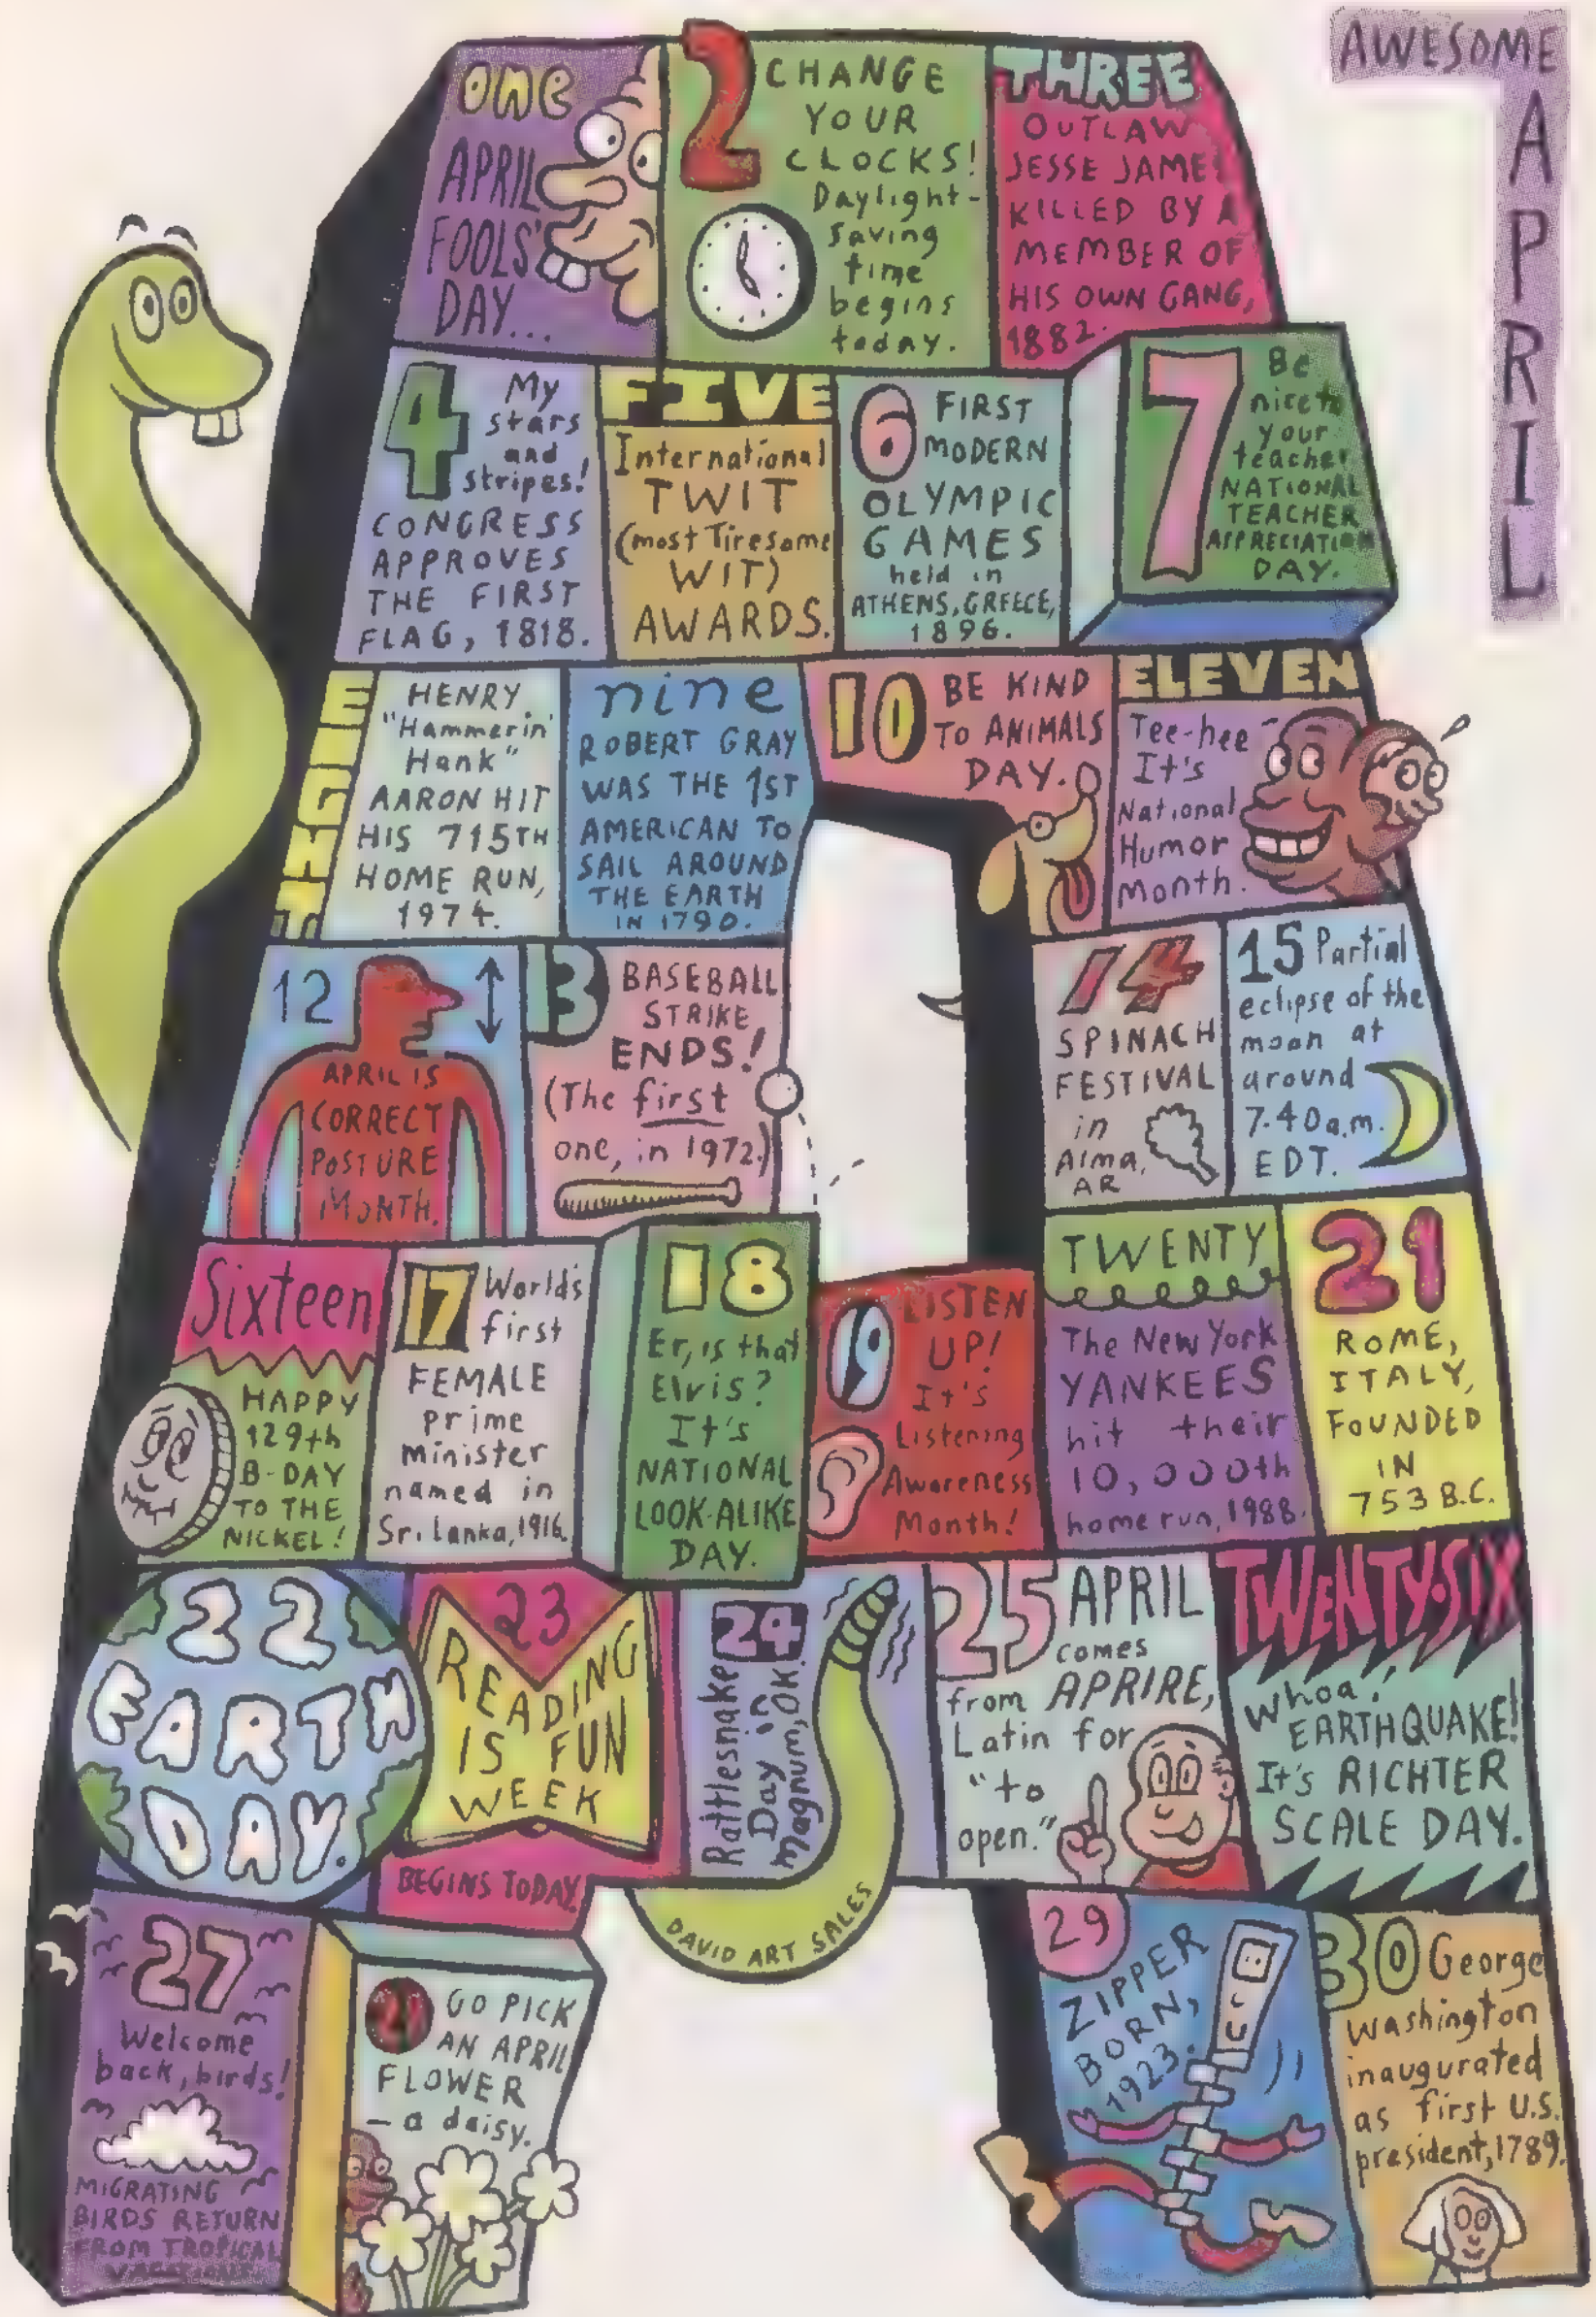 AWESOME
APRIL
ONE
APRIL
FOOLS'
DAY...
2
CHANGE
YOUR
CLOCKS!
Daylight-
saving
time
begins
today.
THREE
OUTLAW
JESSE JAMES
KILLED BY A
MEMBER OF
HIS OWN GANG,
1882.
4
My
stars
and
stripes!
CONGRESS
APPROVES
THE FIRST
FLAG, 1818.
FIVE
International
TWIT
(most Tiresome
WIT)
AWARDS.
6
FIRST
MODERN
OLYMPIC
GAMES
held in
ATHENS, GREECE,
1896.
7
Be
nice to
your
teacher
NATIONAL
TEACHER
APPRECIATION
DAY.
EIGHT
HENRY
"Hammerin'
Hank"
AARON HIT
HIS 715TH
HOME RUN,
1974.
nine
ROBERT GRAY
WAS THE 1ST
AMERICAN TO
SAIL AROUND
THE EARTH
IN 1790.
10
BE KIND
TO ANIMALS
DAY.
ELEVEN
Tee-hee-
It's
National
Humor
Month.
12
APRIL IS
CORRECT
POSTURE
MONTH.
13
BASEBALL
STRIKE
ENDS!
(The first
one, in 1972.)
14
SPINACH
FESTIVAL
in
Alma,
AR
15 Partial
eclipse of the
moon at
around
7:40 a.m.
EDT.
Sixteen
HAPPY
129th
B-DAY
TO THE
NICKEL!
17
World's
first
FEMALE
prime
minister
named in
Sri Lanka, 1916.
18
Er, is that
Elvis?
It's
NATIONAL
LOOK-ALIKE
DAY.
19
LISTEN
UP!
It's
Listening
Awareness
Month!
TWENTY
The New York
YANKEES
hit their
10,000th
home run, 1988.
21
ROME,
ITALY,
FOUNDED
IN
753 B.C.
22
EARTH
DAY.
23
READING
IS FUN
WEEK
BEGINS TODAY.
24
Rattlesnake
Day in
Magnum, OK.
DAVID ART SALES
25
APRIL
comes
from APRIRE,
Latin for
"to
open."
TWENTY-SIX
Whoa!
EARTHQUAKE!
It's RICHTER
SCALE DAY.
27
Welcome
back, birds!
MIGRATING
BIRDS RETURN
FROM TROPICAL
VACATIONS.
GO PICK
AN APRIL
FLOWER
- a daisy.
29
ZIPPER
BORN,
1923.
30 George
Washington
inaugurated
as first U.S.
president, 1789.